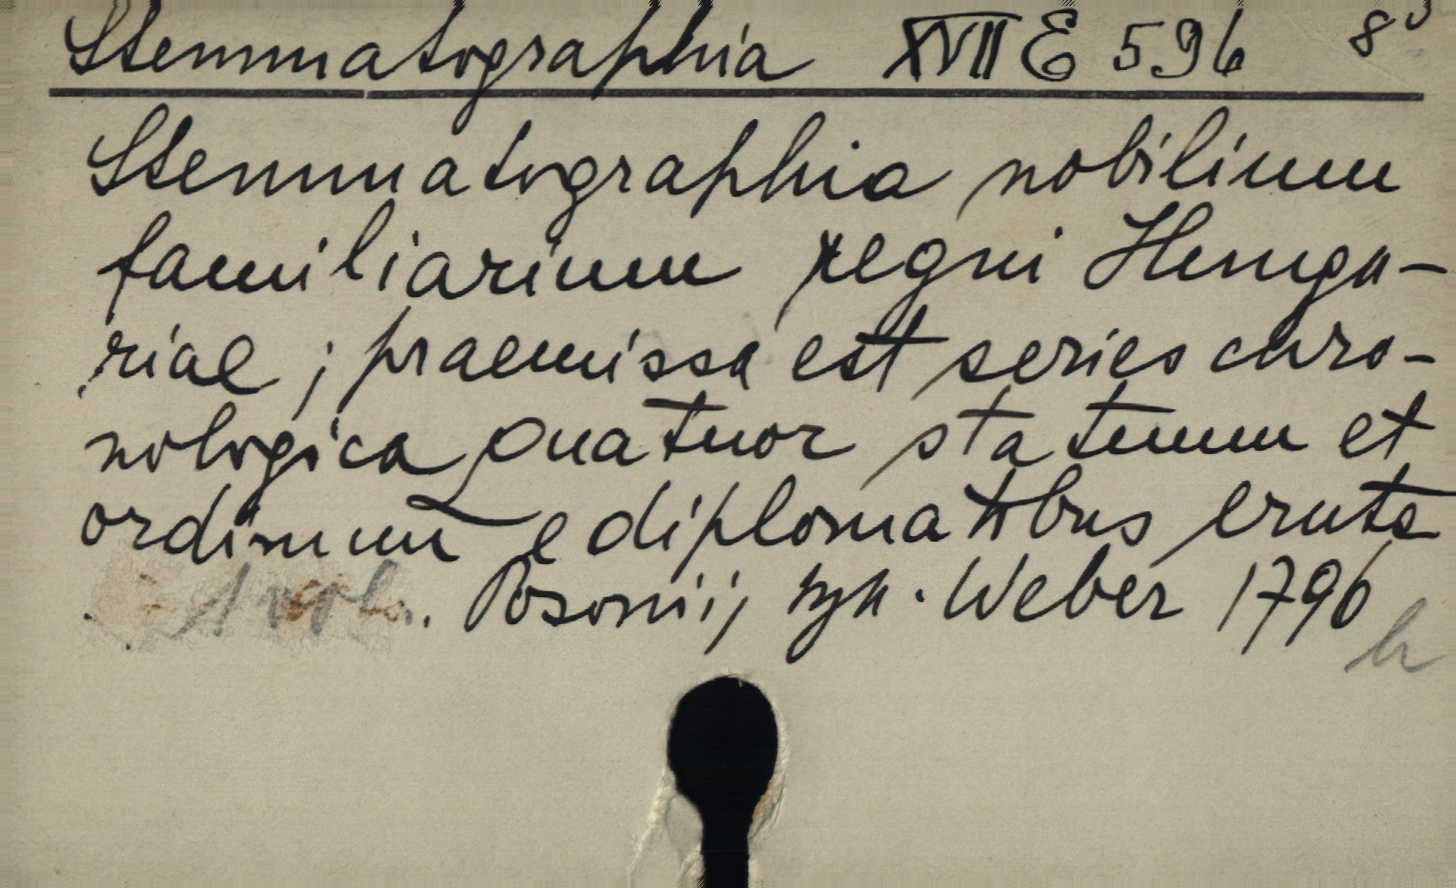 Stemmatographia XVII E 596 8°
Stemmatographia nobilium
familiarium regni Hunga-
riae ; praemissa est series chro-
nologica quatuor statuum et
ordinum e diplomatibus eruta
Posonii, typ. Weber 1796
h